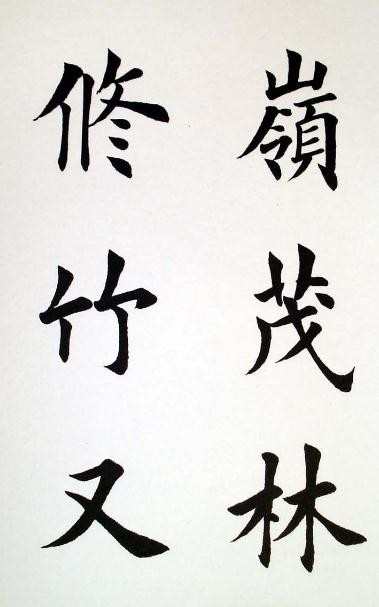 嶺茂林
修竹又